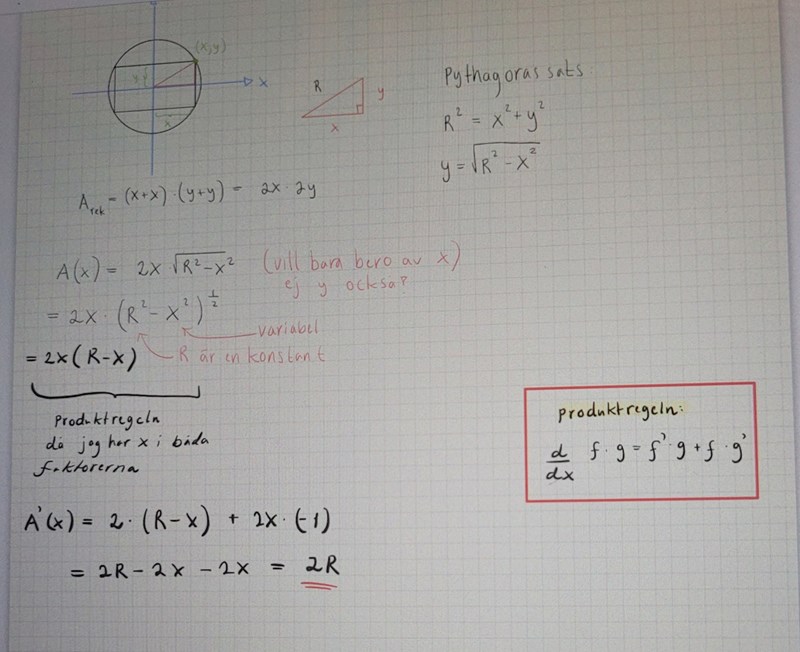 (x,y)
y
x
x
R
y
x
Pythagoras sats
R² = x² + y²
y = √R² - x²
A_rek = (x+x)·(y+y) = 2x · 2y
A(x) = 2x √R² - x² (vill bara bero av x)
ej y också?
= 2x · (R² - x²)^½
variabel
R är en konstant
= 2x(R-x)
Produktregeln
då jag har x i båda
faktorerna
produktregeln:
d/dx f · g = f' · g + f · g'
A'(x) = 2 · (R-x) + 2x · (-1)
= 2R - 2x - 2x = 2R